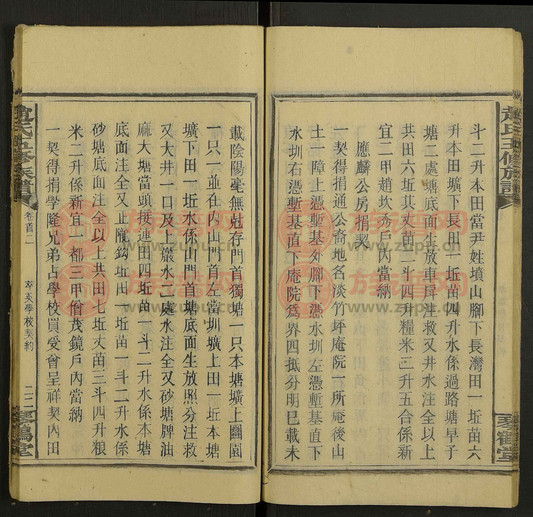 趙氏五修族譜
斗二升本田當尹姓墳山腳下長灣田一坵苗六
升本田壙下長田一坵苗四升水係過路塘早子
塘二處塘底面生放車戽注救又井水注全以上
共田六坵其丈苗一斗四升糧米三升五合係新
宜二甲趙玫秀戶內當納
應麟公房捐契
一契得捐通公裔地名淡竹坪庵院一所庵後山
土一障上憑塹基外腳下憑水圳左憑塹基直下
水圳右憑塹基直下庵院為界四抵分明已載未
琴鶴堂
載陰陽毫無尅存門首獨塘一只本塘壙上園圃
一只一並在內山門首左當圳壙上田一坵本塘
壙下田一坵水係山門首塘底面生放照分注救
又大井一口及上巖水二處水注全又砂塘牌油
麻大塘當頭挾連田四坵苗一斗二升水係本塘
底面注全又
坵田一坵苗一斗二升水係
砂塘底面注全以上共田七坵丈苗三斗四升根
米二升係新宜一都三甲佾茂鏡戶內當納
一契得捐學隆兄弟占學校買受會呈祥契內田
趙氏五修族譜
卷首二
萃支學校契約
二二
琴鶴堂
族譜网
www.zupu.cn